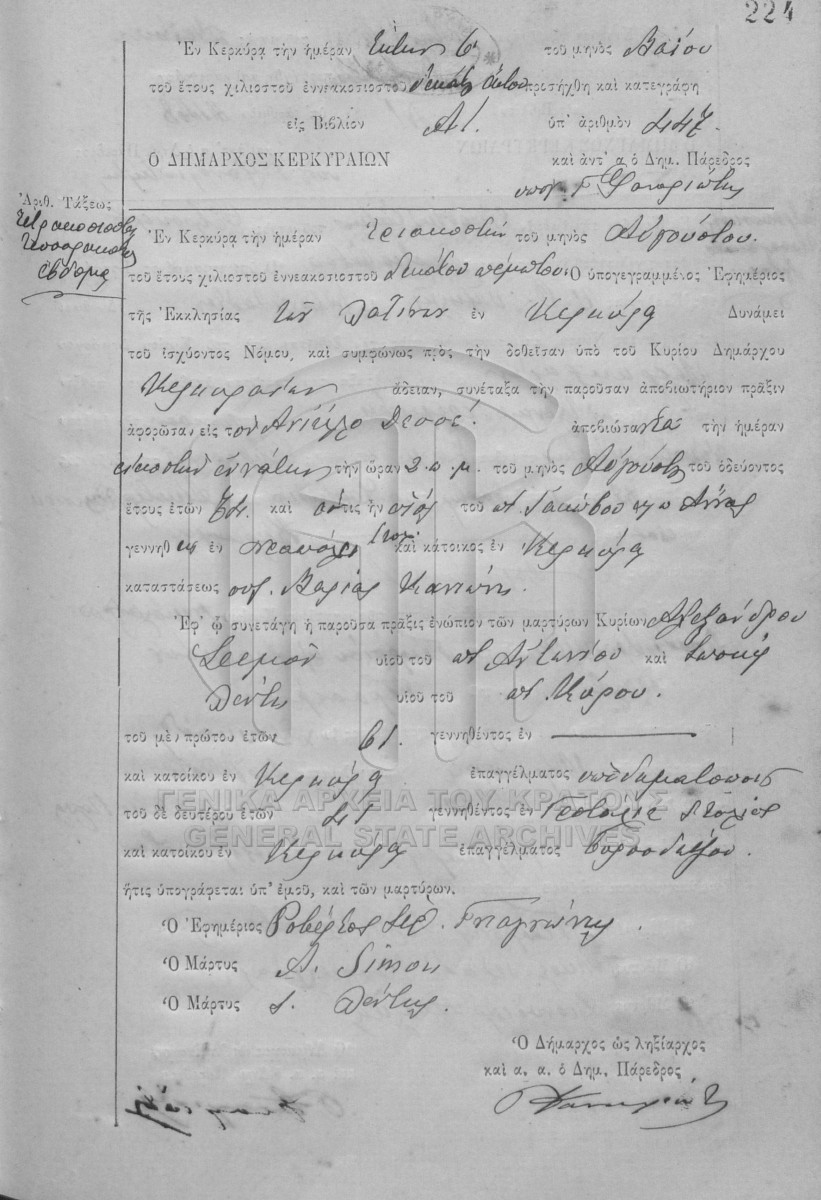 224
Ἐν Κερκύρᾳ τὴν ἡμέραν ἕκτην 6 τοῦ μηνὸς Μαΐου
τοῦ ἔτους χιλιοστοῦ ἐννεακοσιοστοῦ δεκάτου ἕκτου προσήχθη καὶ κατεγράφη
εἰς Βιβλίον Α1. ὑπ' ἀριθμὸν 447.
Ὁ ΔΗΜΑΡΧΟΣ ΚΕΡΚΥΡΑΙΩΝ καὶ ἀντ' α ὁ Δημ. Πάρεδρος
υπογ. Γ
Ἀριθ. Τάξεως
τετρακοσιοστὴ
τεσσαρακοστὴ
ἑβδόμη
Ἐν Κερκύρᾳ τὴν ἡμέραν τριακοστὴν τοῦ μηνὸς Αὐγούστου.
τοῦ ἔτους χιλιοστοῦ ἐννεακοσιοστοῦ δεκάτου πέμπτου Ὁ ὑπογεγραμμένος Ἐφημέριος
τῆς Ἐκκλησίας τῶν Λατίνων ἐν Κερκύρᾳ Δυνάμει
τοῦ ἰσχύοντος Νόμου, καὶ συμφώνως πρὸς τὴν δοθεῖσαν ὑπὸ τοῦ Κυρίου Δημάρχου
Κερκυραίων ἄδειαν, συνέταξα τὴν παροῦσαν ἀποβιωτήριον πρᾶξιν
ἀφορῶσαν εἰς τὸν Ἀνιέλλο ἀποβιώσαντα τὴν ἡμέραν
εἰκοστὴν ἐννάτην τὴν ὥραν 3 π. μ. τοῦ μηνὸς Αὐγούστου τοῦ ὁδεύοντος
ἔτους ἐτῶν 74 καὶ ὅστις ἦν υἱὸς τοῦ ποτ Ἰακώβου καὶ Ἄννας
γεννηθεὶς ἐν Νεαπόλει Ἰταλ. καὶ κάτοικος ἐν Κερκύρᾳ
καταστάσεως συζ. Μαρίας
Ἐφ' ᾧ συνετάγη ἡ παροῦσα πρᾶξις ἐνώπιον τῶν μαρτύρων Κυρίων Ἀλεξάνδρου
Σιμὸν υἱοῦ τοῦ ποτ Ἀντωνίου καὶ
Λέντζη υἱοῦ τοῦ ποτ
τοῦ μὲν πρώτου ἐτῶν 61. γεννηθέντος ἐν
καὶ κατοίκου ἐν Κερκύρᾳ ἐπαγγέλματος ὑποδηματοποιοῦ
ΓΕΝΙΚΑ ΑΡΧΕΙΑ ΤΟΥ ΚΡΑΤΟΥΣ
τοῦ δὲ δευτέρου ἐτῶν 41 γεννηθέντος ἐν
GENERAL STATE ARCHIVES
καὶ κατοίκου ἐν Κερκύρᾳ ἐπαγγέλματος βυρσοδέψου.
ἥτις ὑπογράφεται ὑπ' ἐμοῦ, καὶ τῶν μαρτύρων.
Ὁ Ἐφημέριος Ροβέρτος
Ὁ Μάρτυς A. Simon
Ὁ Μάρτυς
Ὁ Δήμαρχος ὡς ληξίαρχος
καὶ α. α. ὁ Δημ. Πάρεδρος